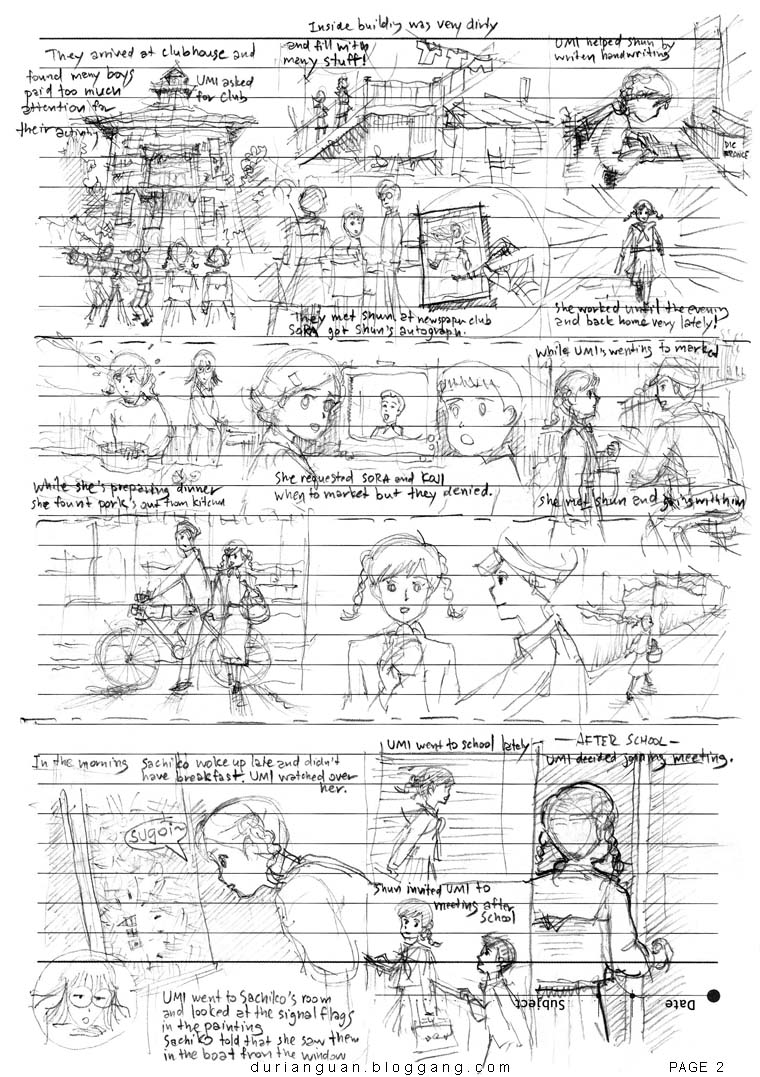 Inside building was very dirty
and fill with
meny stuff!
They arrived at clubhouse and
found meny boys
paid too much
attention for
their activity
UMI asked
for club
UMI helped Shun by
writen handwriting
They met Shun at newspaper club
SORA got Shun's autograph.
She worked until the evening
and back home very lately!
While she's preparing dinner
she fount pork's out from kitchen
She requested SORA and KOJI
when to market but they denied.
While UMI's wenting to marked
she met Shun and going with him
In the morning Sachiko woke up late and didn't
have breakfast. UMI watched over
her.
UMI went to school lately
— AFTER SCHOOL —
UMI decided joining meeting.
sugoi~
Shun invited UMI to
meeting after
School
UMI went to Sachiko's room
and looked at the signal flags
in the painting
Sachiko told that she saw them
in the boat from the window
Subject
Date
durianguan.bloggang.com
PAGE 2